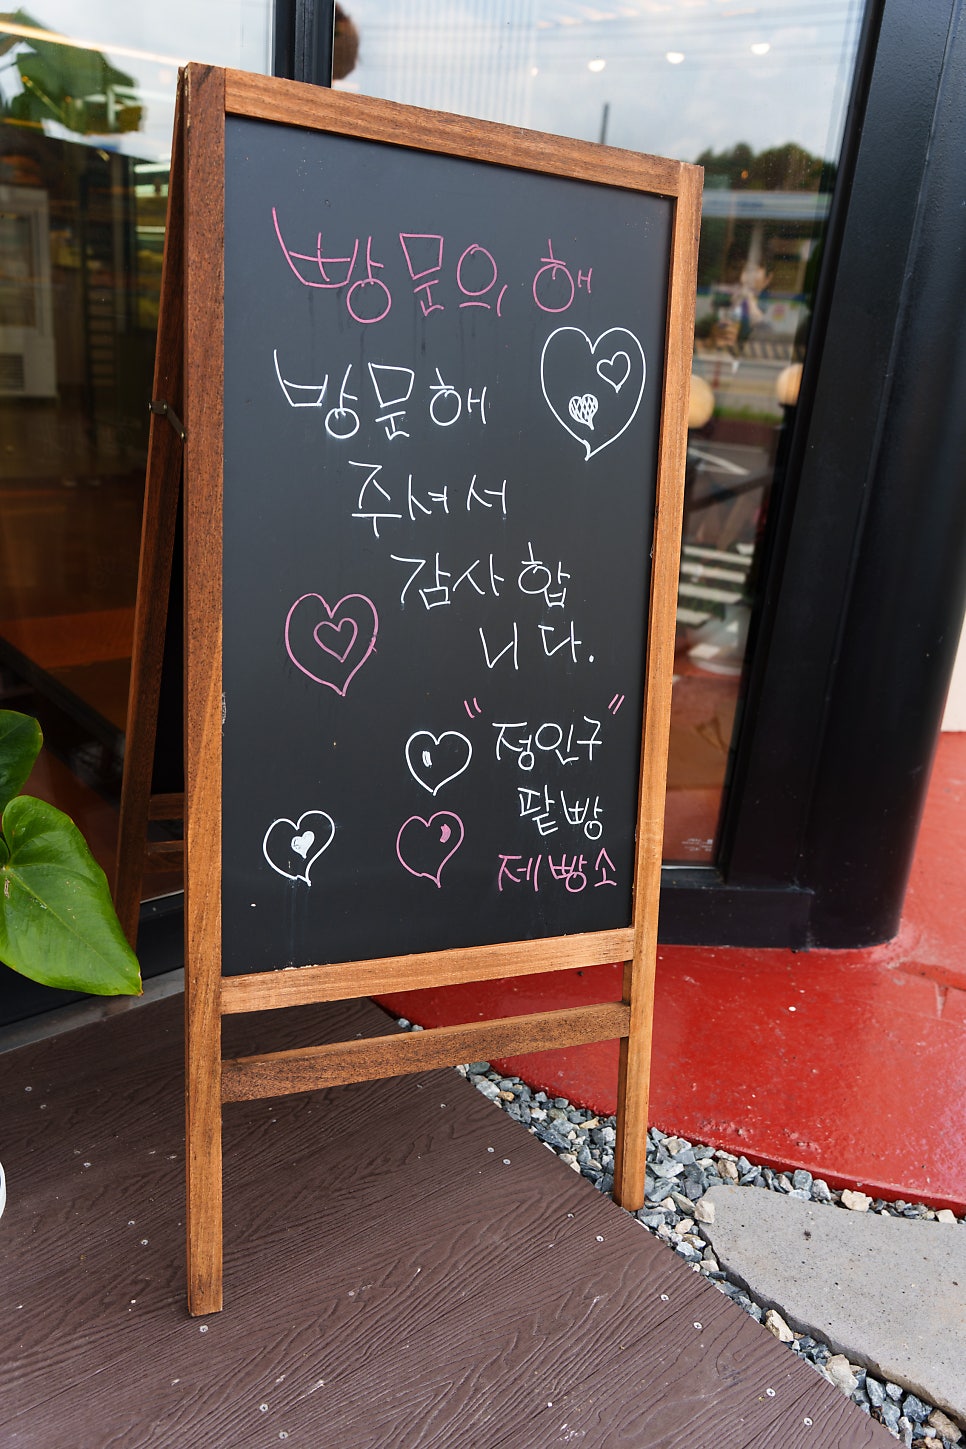 방문의, 해
방문해
주셔서
감사합
니다.
"정인구"
팥빵
제빵소